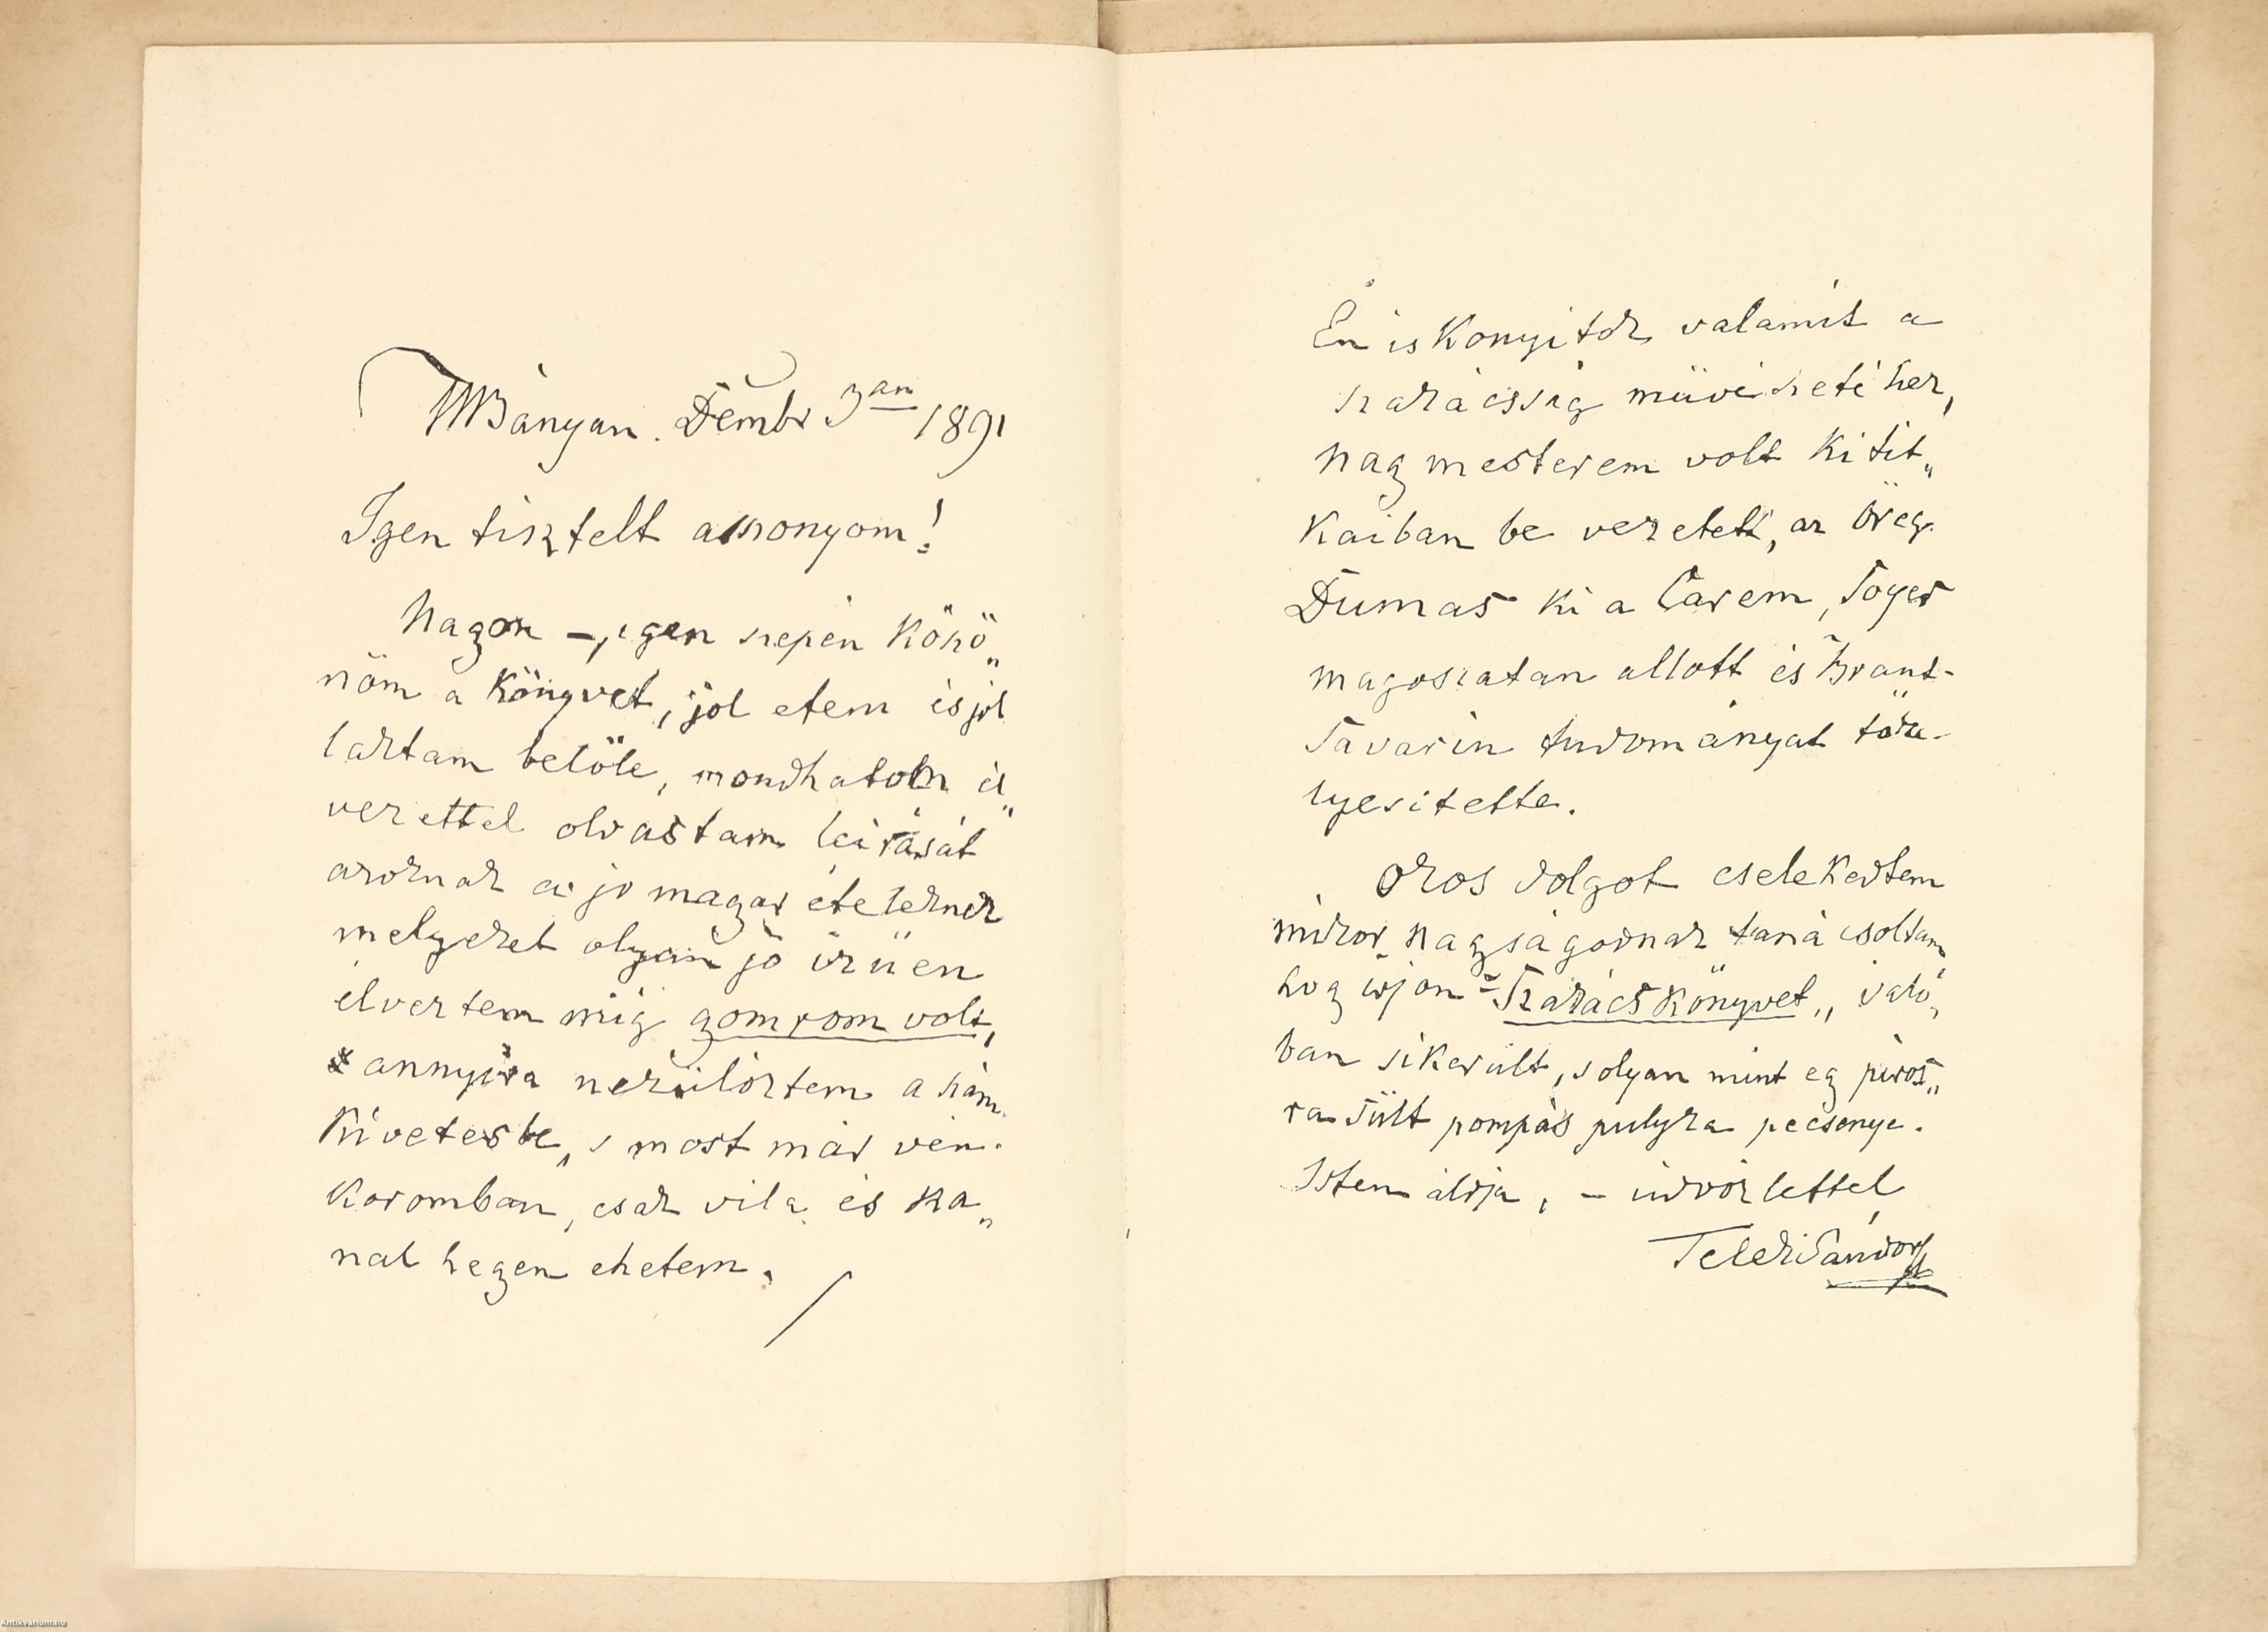 NBányan. Dembr 3an 1891
Igen tisztelt asszonyom!
Nagyon –, igen szepén köszö„
nöm a Könyvet, jol etem és jól
laktam belöle, mondhatom él„
vezettel olvastam leirását
azoknak a jó magyar ételeknek
melyeket olyan jó izüen
élveztem mig gyomrom volt,
s annyira nezülöztem a szám„
kivetesbe, s most már vén„
koromban, csak vila és ka„
nal hegyen ehetem.
Én is Konyitok valamit a
szakácsság müvészetéhez,
nagy mesterem volt kititt„
kaiban be vezetett, az öreg
Dumas ki a Carem, Soyer
magoslatan allott és Brant-
Savarin tudományat töké-
lyesitette.
Okos dolgot cselekedtem
mikor nagyságodnak tanácsoltam
hogy irjon „Szakács Könyvet„, való„
ban sikerült, s olyan mint egy piros„
ra sült pompás pulyka pecsenye.
Isten áldja, – üdvözlettel
Teleki Sándor
Antikvarium.hu